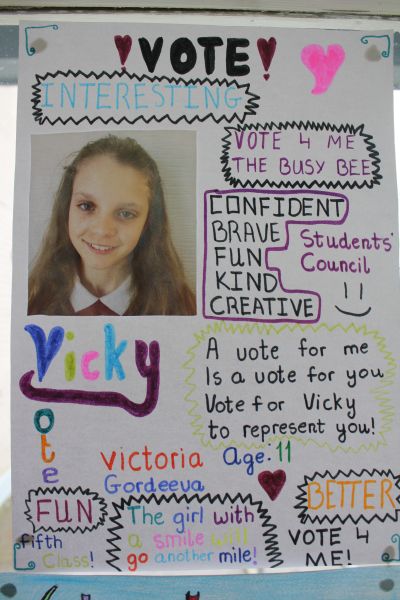 !VOTE!
INTERESTING
VOTE 4 ME
THE BUSY BEE
CONFIDENT
BRAVE
FUN
KIND
CREATIVE
Students'
Council
Vicky
ote
A vote for me
Is a vote for you
Vote for Vicky
to represent you!
Victoria
Gordeeva
Age. 11
FUN
fifth
Class!
The girl with
a smile will
go another mile!
BETTER
VOTE 4
ME!